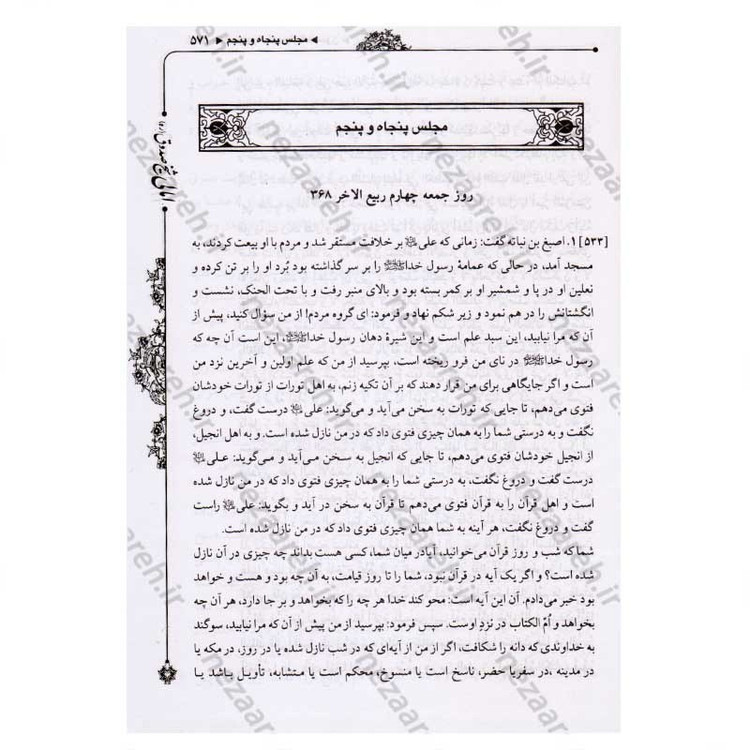 ◄ مجلس پنجاه و پنجم ► ۵۷۱
امالی شیخ صدوق (ره)
مجلس پنجاه و پنجم
روز جمعه چهارم ربیع الاخر ۳۶۸
[۵۳۳] ۱. اصبغ بن نباته گفت: زمانی که علی؏ بر خلافت مستقر شد و مردم با او بیعت کردند، به
مسجد آمد، در حالی که عمامهٔ رسول خداﷺ را بر سر گذاشته بود بُرد او را بر تن کرده و
نعلین او در پا و شمشیر او بر کمر بسته بود و بالای منبر رفت و با تحت الحنک، نشست و
انگشتانش را در هم نمود و زیر شکم نهاد و فرمود: ای گروه مردم! از من سؤال کنید، پیش از
آن که مرا نیابید، این سبد علم است و این شیرهٔ دهان رسول خداﷺ، این است آن چه که
رسول خداﷺ در نای من فرو ریخته است، بپرسید از من که علم اولین و آخرین نزد من
است و اگر جایگاهی برای من قرار دهند که بر آن تکیه زنم، به اهل تورات از تورات خودشان
فتوی می‌دهم، تا جایی که تورات به سخن می‌آید و می‌گوید: علی؏ درست گفت، و دروغ
نگفت و به درستی شما را به همان چیزی فتوی داد که در من نازل شده است. و به اهل انجیل،
از انجیل خودشان فتوی می‌دهم، تا جایی که انجیل به سخن می‌آید و می‌گوید: علی؏
درست گفت و دروغ نگفت، به درستی شما را به همان چیزی فتوی داد که در من نازل شده
است و اهل قرآن را به قرآن فتوی می‌دهم تا قرآن به سخن در آید و بگوید: علی؏ راست
گفت و دروغ نگفت، هر آینه به شما همان چیزی فتوی داد که در من نازل شده است.
شما که شب و روز قرآن می‌خوانید، آیا در میان شما، کسی هست بداند چه چیزی در آن نازل
شده است؟ و اگر یک آیه در قرآن نبود، شما را تا روز قیامت، به آن چه بود و هست و خواهد
بود خبر می‌دادم. آن این آیه است: محو کند خدا هر چه را که بخواهد و بر جا دارد، هر آن چه
بخواهد و اُمّ الکتاب در نزد اوست. سپس فرمود: بپرسید از من پیش از آن که مرا نیابید، سوگند
به خداوندی که دانه را شکافت، اگر از من از آیه‌ای که در شب نازل شده یا در روز، در مکه یا
در مدینه، در سفر یا حضر، ناسخ است یا منسوخ، محکم است یا متشابه، تأویل باشد یا
nezaareh.ir